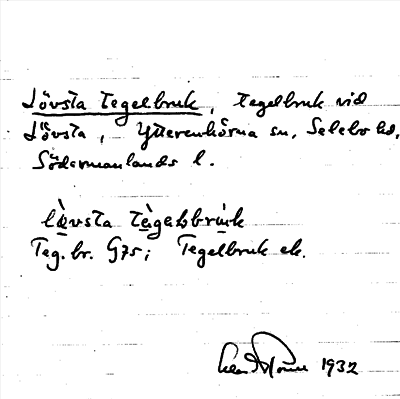 Lövsta Tegelbruk, tegelbruk vid
Lövsta, Ytterenhörna sn, Selebo hd,
Södermanlands l.
lè̠vsta tè̠gəlbrù̠k
Teg. br. G75; Tegelbruk ek.
1932